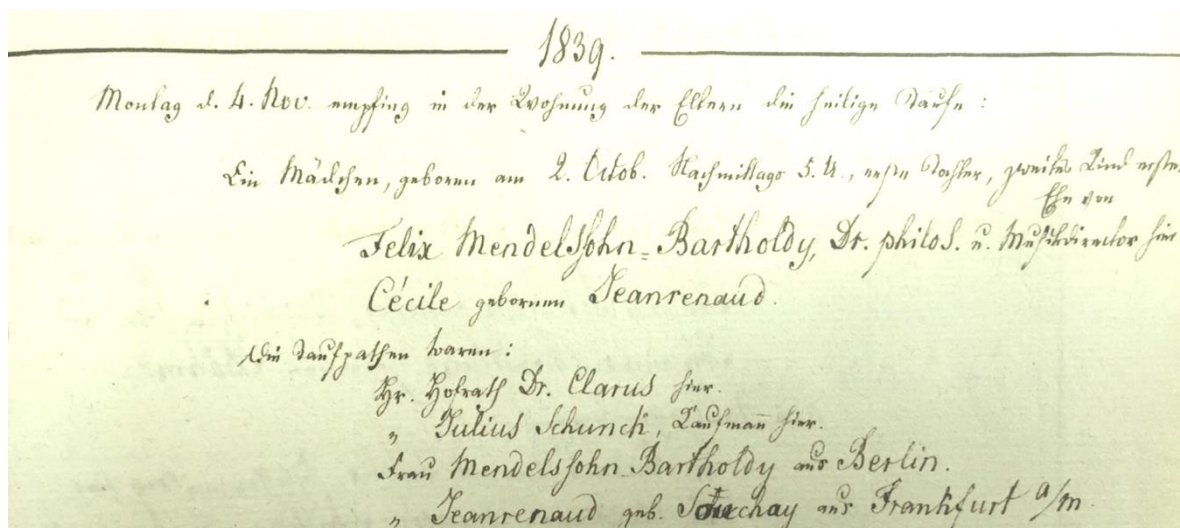 1839.
Montag d. 4. Nov. empfing in der Wohnung der Eltern die heilige Taufe:
Ein Mädchen, geboren am 2. Octob. Nachmittags 5. U., erste Tochter, zweites Kind erster
Ehe von
Felix Mendelssohn-Bartholdy, Dr. philos. u. Musikdirector hier
Cécile gebornen Jeanrenaud.
Die Taufpathen waren:
Hr. Hofrath Dr. Clarus hier.
„ Julius Schunck, Kaufmañ hier.
Frau Mendelssohn-Bartholdy aus Berlin.
„ Jeanrenaud geb. Souchay aus Frankfurt a/m.